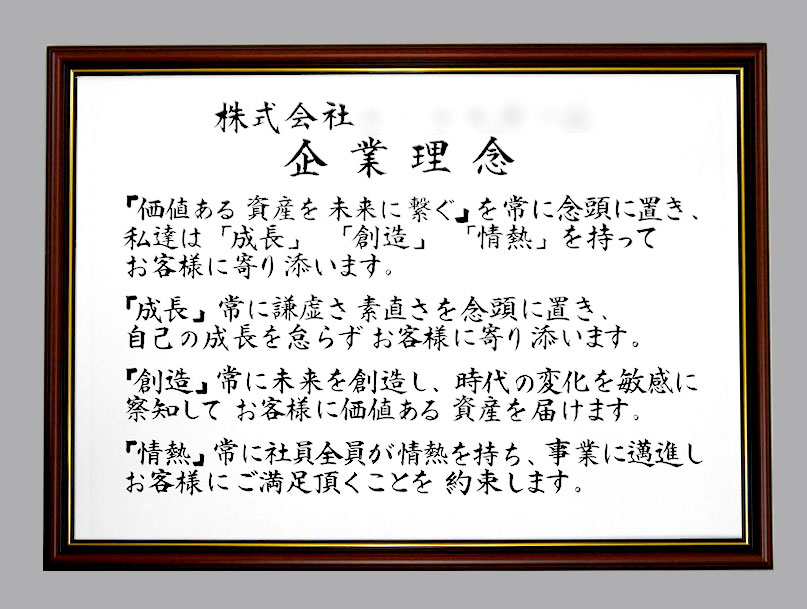 株式会社
企業理念
『価値ある 資産を 未来に 繋ぐ』を常に念頭に置き、
私達は「成長」 「創造」 「情熱」を持って
お客様に寄り添います。
『成長』常に謙虚さ 素直さを念頭に置き、
自己の成長を怠らず お客様に寄り添います。
『創造』常に未来を創造し、時代の変化を敏感に
察知して お客様に価値ある 資産を届けます。
『情熱』常に社員全員が情熱を持ち、事業に邁進し
お客様にご満足頂くことを 約束します。